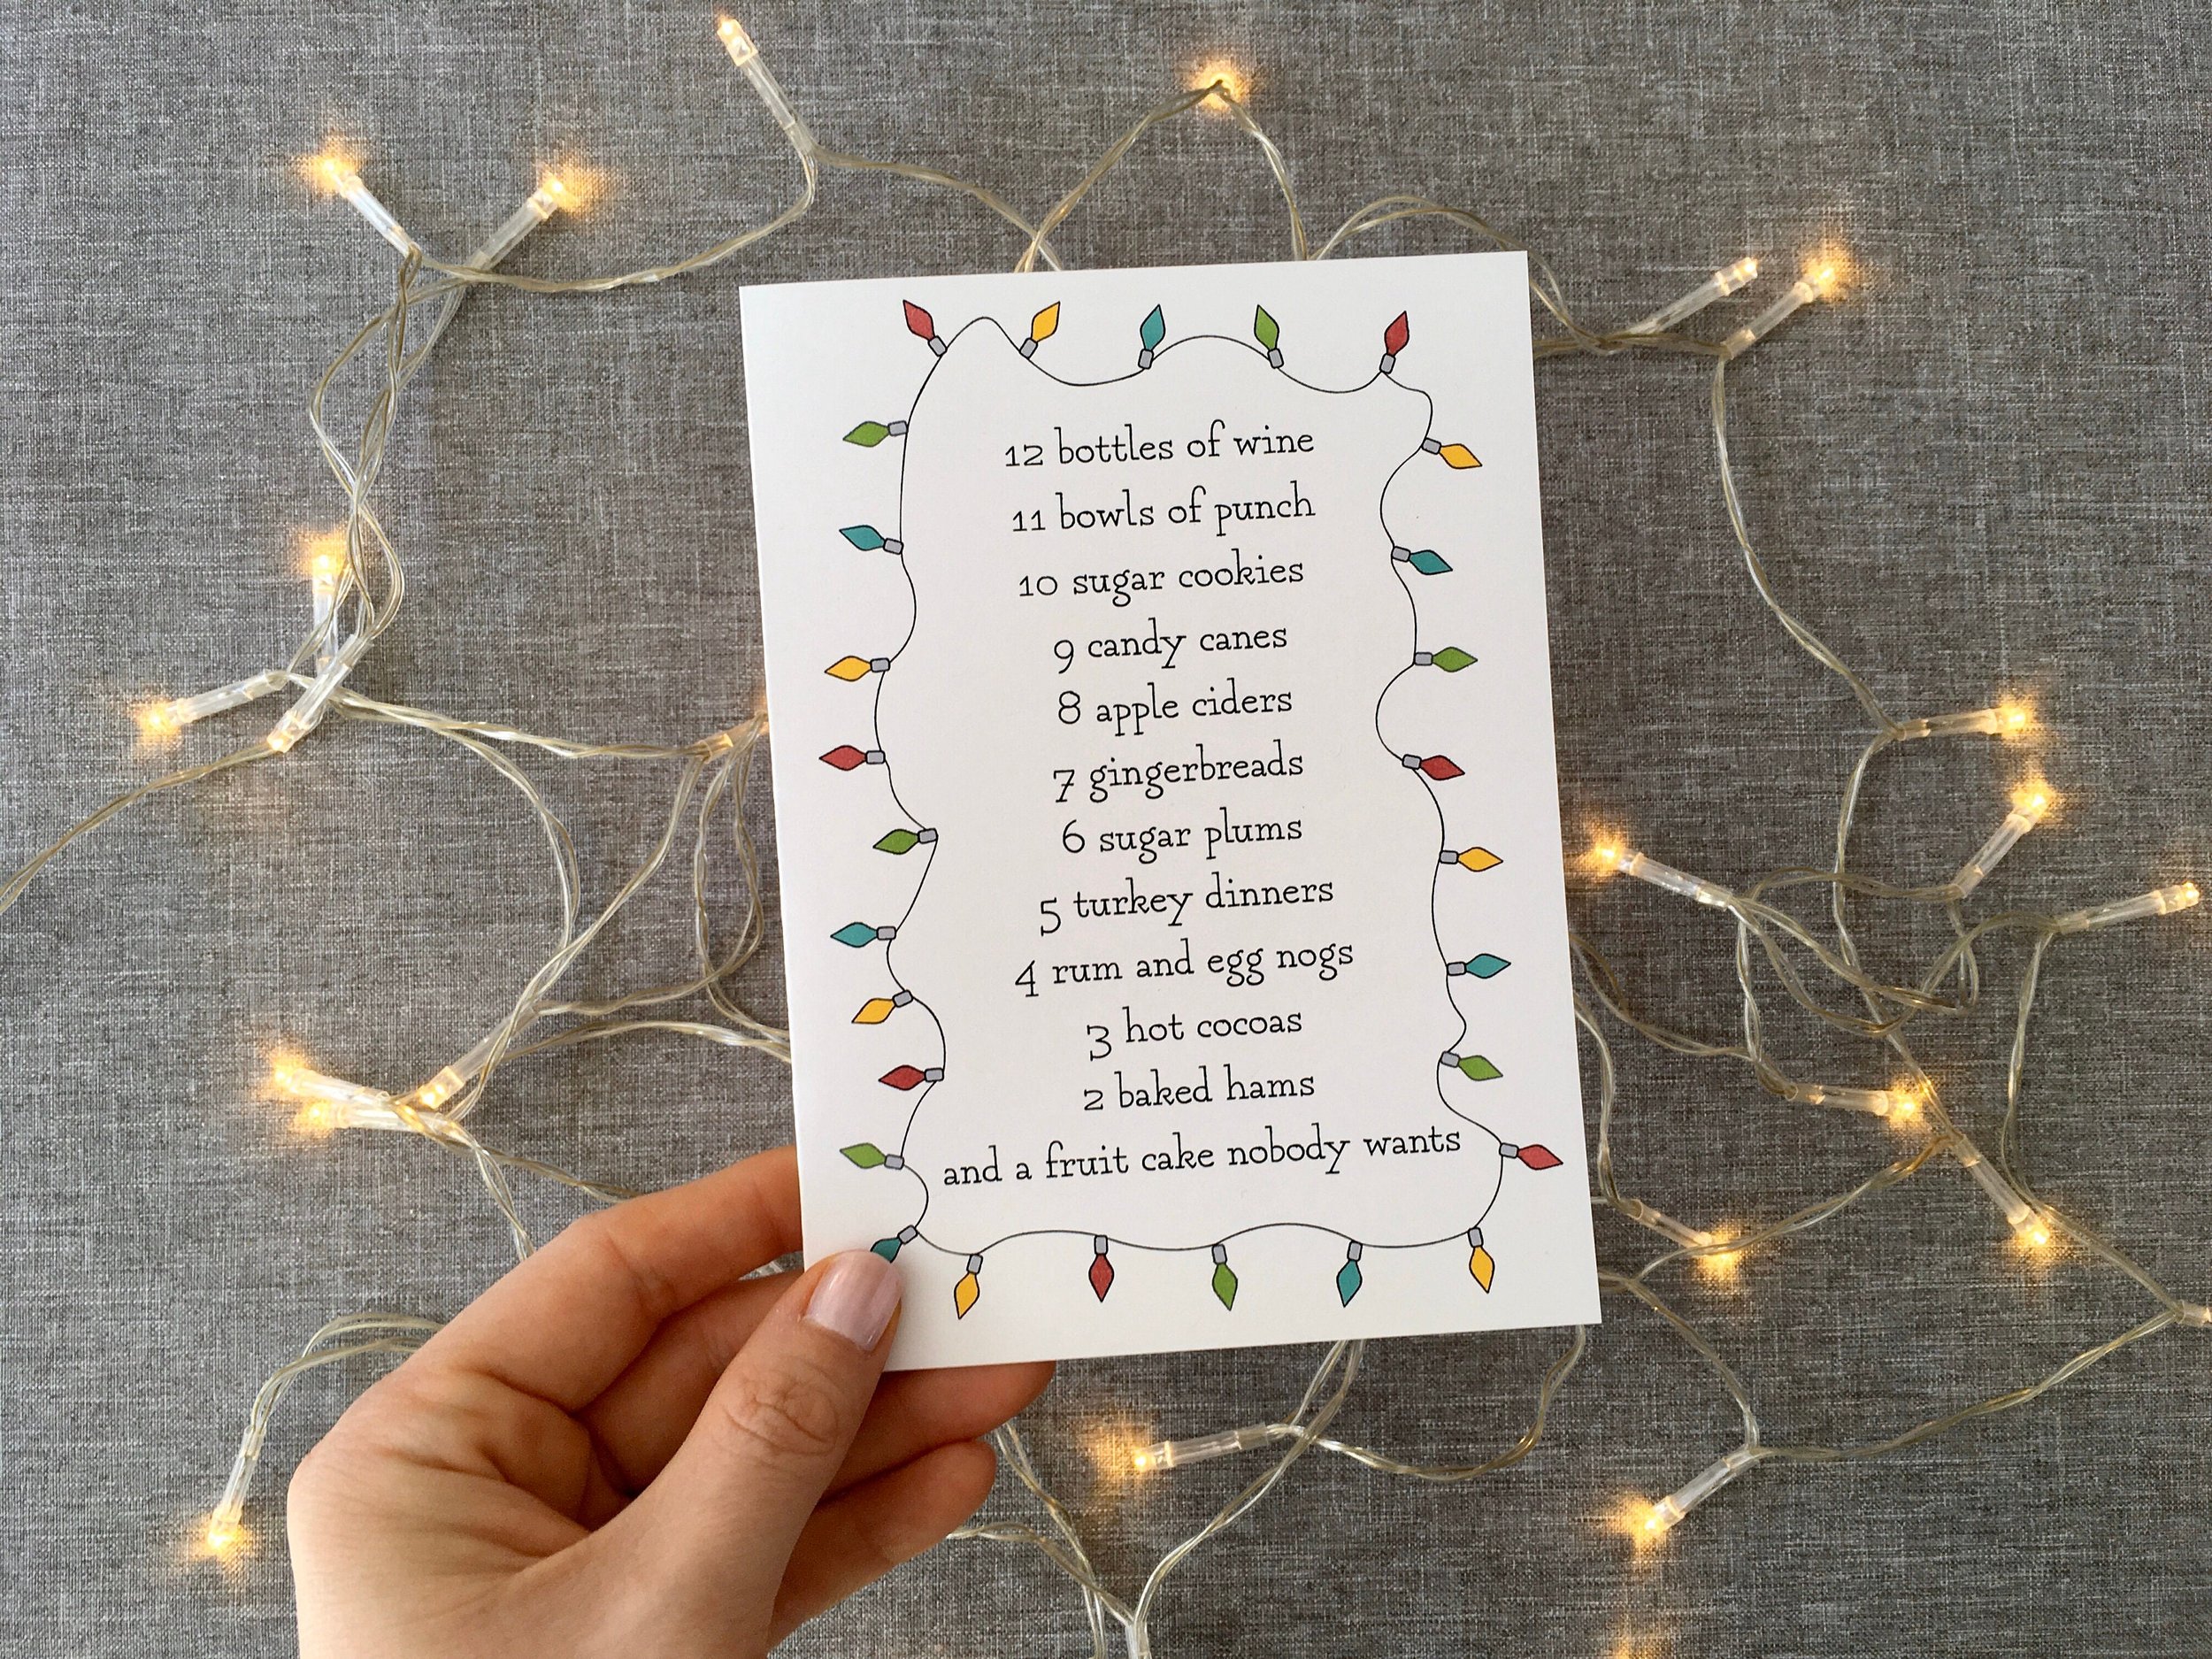 12 bottles of wine
11 bowls of punch
10 sugar cookies
9 candy canes
8 apple ciders
7 gingerbreads
6 sugar plums
5 turkey dinners
4 rum and egg nogs
3 hot cocoas
2 baked hams
and a fruit cake nobody wants